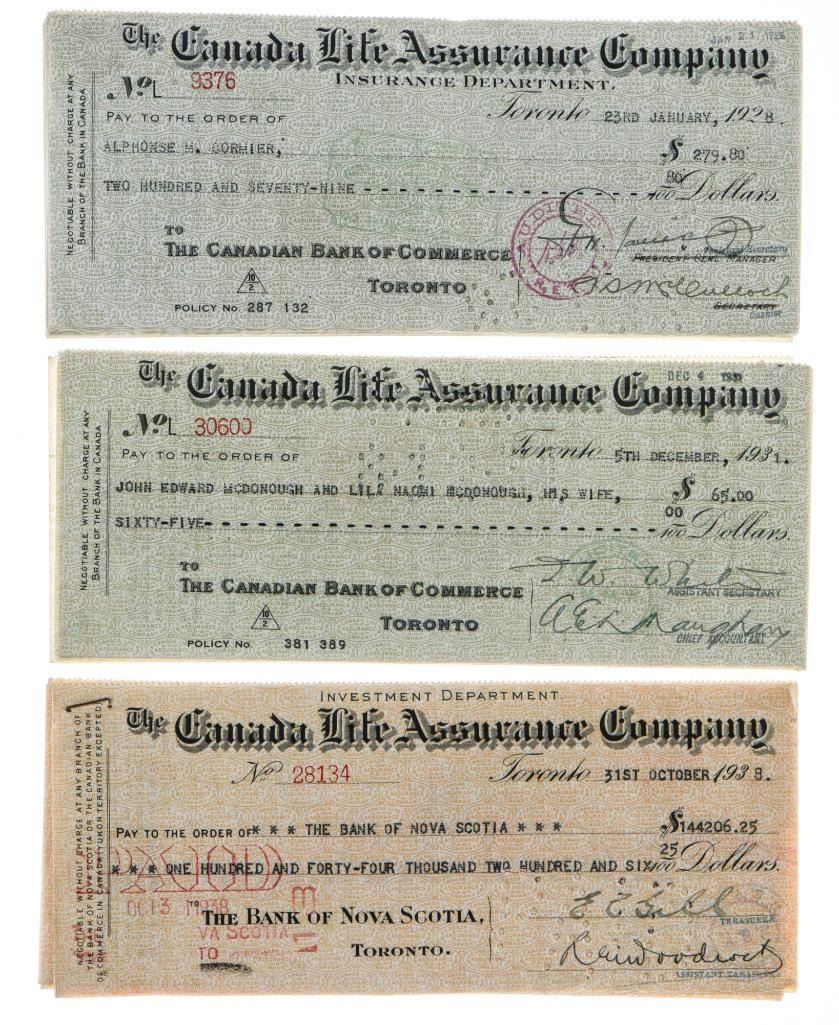 JAN 21 1928
The Canada Life Assurance Company
INSURANCE DEPARTMENT.
No L 9376
Toronto 23RD JANUARY, 1928.
PAY TO THE ORDER OF
ALPHONSE M. CORMIER, $ 279.80
TWO HUNDRED AND SEVENTY-NINE - - - - - - - - - - 80/100 Dollars.
TO
THE CANADIAN BANK OF COMMERCE
TORONTO
10/2
POLICY No. 287 132
AUDITED
Assistant Secretary
PRESIDENT GENL. MANAGER
SECRETARY
Cashier
NEGOTIABLE WITHOUT CHARGE AT ANY
BRANCH OF THE BANK IN CANADA.
DEC 4 1931
The Canada Life Assurance Company
No L 30600
PAY TO THE ORDER OF
Toronto 5TH DECEMBER, 1931.
JOHN EDWARD MCDONOUGH AND LILA NAOMI MCDONOUGH, HIS WIFE, $ 65.00
SIXTY-FIVE- - - - - - - - - - - - - - - - 00/100 Dollars.
TO
THE CANADIAN BANK OF COMMERCE
TORONTO
10/2
POLICY No. 381 389
ASSISTANT SECRETARY
CHIEF ACCOUNTANT
NEGOTIABLE WITHOUT CHARGE AT ANY
BRANCH OF THE BANK IN CANADA.
INVESTMENT DEPARTMENT.
The Canada Life Assurance Company
No 28134
Toronto 31ST OCTOBER 1938.
PAY TO THE ORDER OF * * * THE BANK OF NOVA SCOTIA * * * $144206.25
* * * ONE HUNDRED AND FORTY-FOUR THOUSAND TWO HUNDRED AND SIX 25/100 Dollars.
PAID
OCT 3 1938
VA SCOTIA
TO
TO
THE BANK OF NOVA SCOTIA,
TORONTO.
TREASURER
R G Woodcock
ASSISTANT TREASURER
NEGOTIABLE WITHOUT CHARGE AT ANY BRANCH OF
THE BANK OF NOVA SCOTIA OR THE CANADIAN BANK
OF COMMERCE IN CANADA (YUKON TERRITORY EXCEPTED)